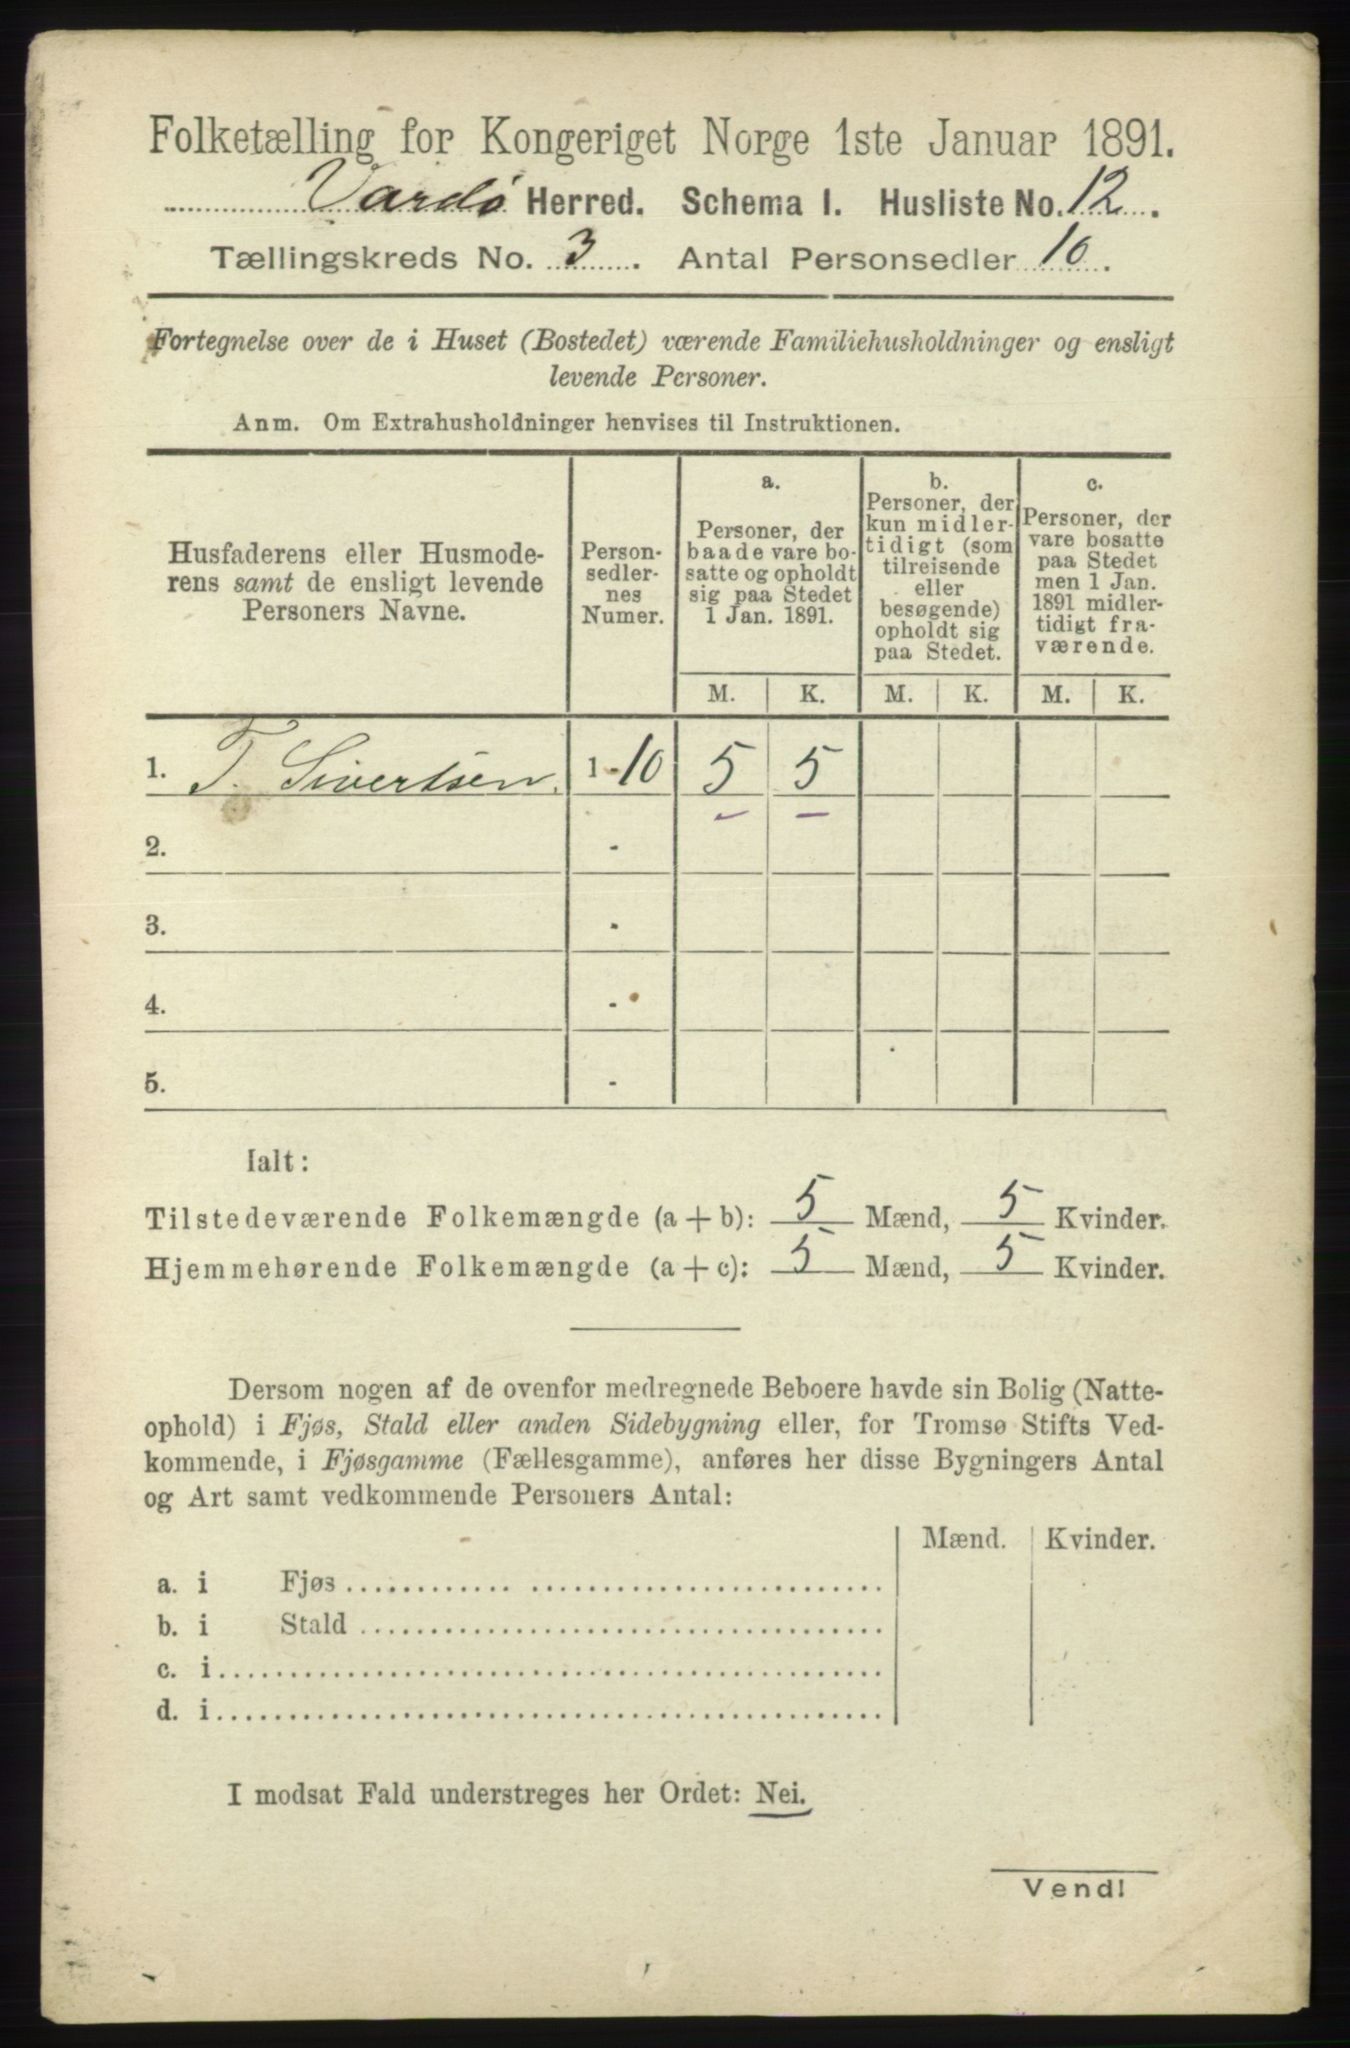 Folketælling for Kongeriget Norge 1ste Januar 1891.
Vardø Herred. Schema I. Husliste No. 12.
Tællingskreds No. 3. Antal Personsedler 10.
Fortegnelse over de i Huset (Bostedet) værende Familiehusholdninger og ensligt
levende Personer.
Anm. Om Extrahusholdninger henvises til Instruktionen.
Husfaderens eller Husmode-
rens samt de ensligt levende
Personers Navne.
Person-
sedler-
nes
Numer.
a.
Personer, der
baade vare bo-
satte og opholdt
sig paa Stedet
1 Jan. 1891.
b.
Personer, der
kun midler-
tidigt (som
tilreisende
eller
besøgende)
opholdt sig
paa Stedet.
c.
Personer, der
vare bosatte
paa Stedet
men 1 Jan.
1891 midler-
tidigt fra-
værende.
M. K. M. K. M. K.
1. T. Sivertsen. 1-10 5 5
2. -
3. -
4. -
5. -
Ialt:
Tilstedeværende Folkemængde (a + b): 5 Mænd, 5 Kvinder.
Hjemmehørende Folkemængde (a + c): 5 Mænd, 5 Kvinder.
Dersom nogen af de ovenfor medregnede Beboere havde sin Bolig (Natte-
ophold) i Fjøs, Stald eller anden Sidebygning eller, for Tromsø Stifts Ved-
kommende, i Fjøsgamme (Fællesgamme), anføres her disse Bygningers Antal
og Art samt vedkommende Personers Antal:
Mænd. Kvinder.
a. i Fjøs
b. i Stald
c. i
d. i
I modsat Fald understreges her Ordet: Nei.
Vend!